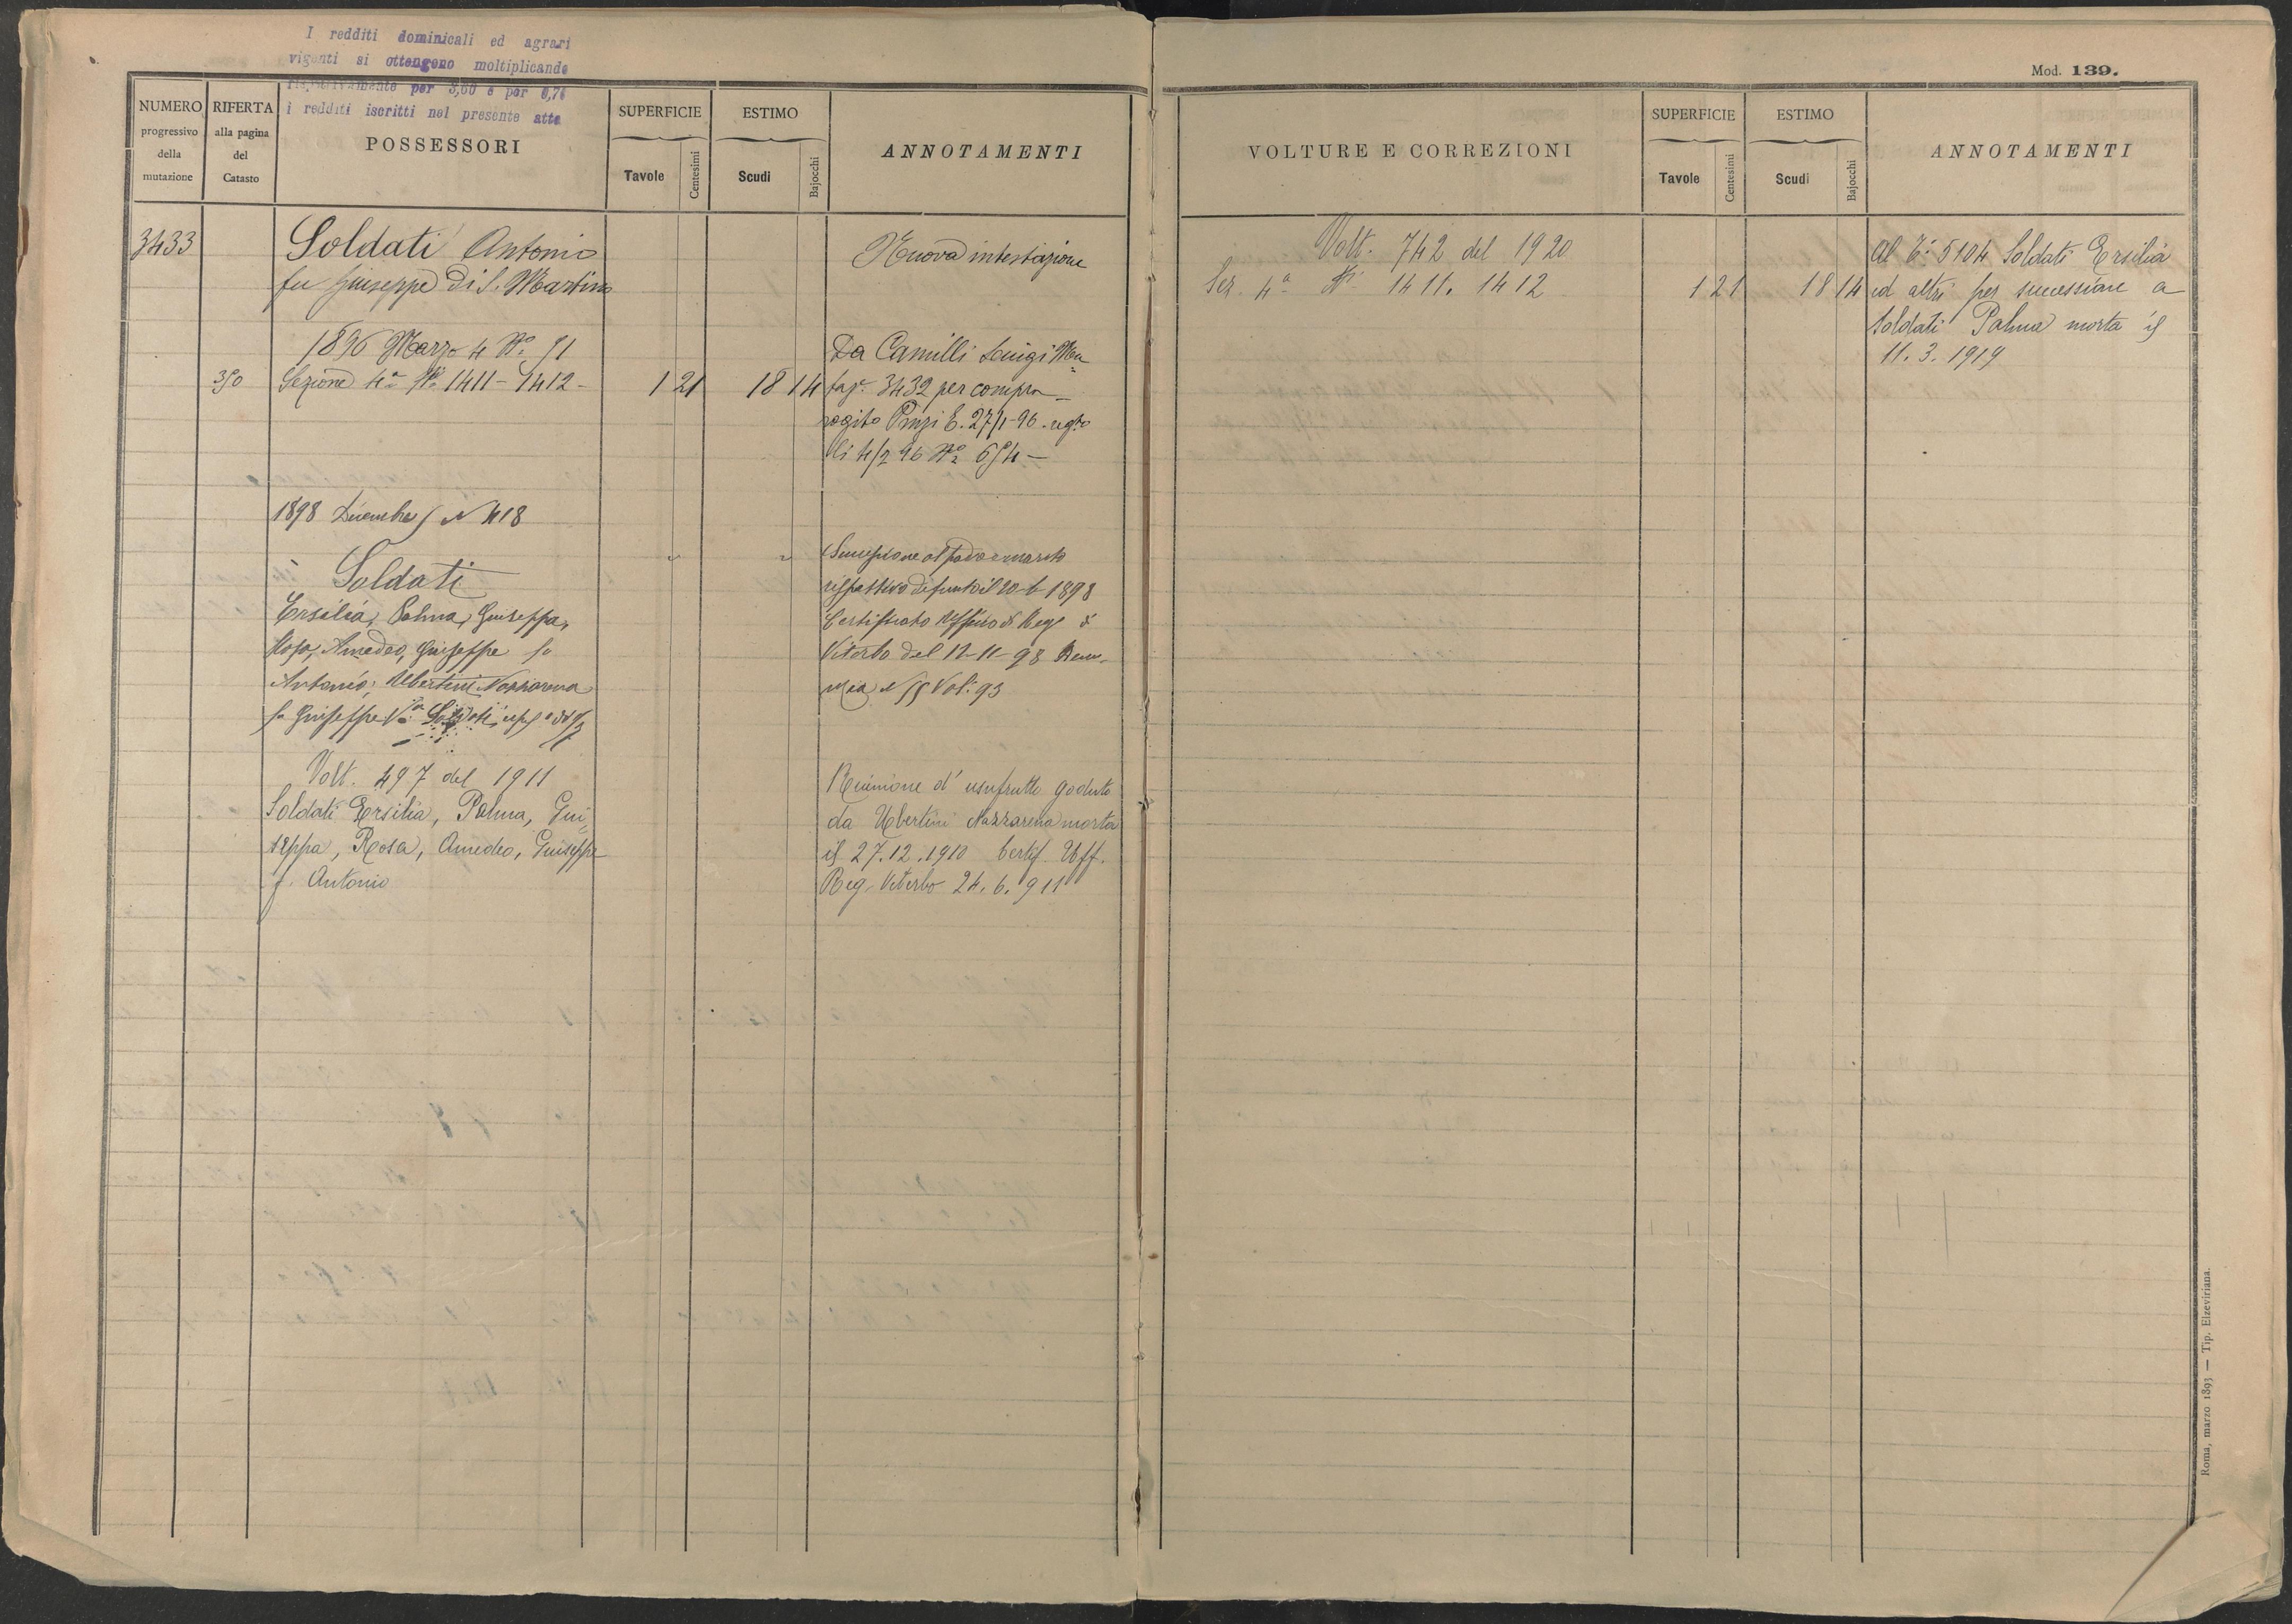 I redditi dominicali ed agrari
vigenti si ottengono moltiplicando
rispettivamente per 3,60 e per
i redditi iscritti nel presente atto
Mod. 139.
NUMERO
progressivo
della
mutazione
RIFERTA
alla pagina
del
Catasto
POSSESSORI
SUPERFICIE
Tavole
Centesimi
ESTIMO
Scudi
Bajocchi
ANNOTAMENTI
VOLTURE E CORREZIONI
SUPERFICIE
Tavole
Centesimi
ESTIMO
Scudi
Bajocchi
ANNOTAMENTI
3433
Soldati Antonio
fu Giuseppe di S. Martino
Nuova intestazione
1896 Marzo 4 N.º 51
350 Sezione 4ª Nⁱ 1411 - 1412 - 1 21 18 14
Da Camilli Luigi
3432 per compra
rogito Pinzi E. 27/1-96. regto
li 4/2 96 Nº 654 -
1898 Dicembre 5 N 418
Soldati
Ersilia, Palma, Giuseppa,
Rosa, Amedeo, Giuseppe fu
Antonio; Ubertini Nazzarena
fu Giuseppe Vª Soldati
Successione al padre e marito
rispettivo defunto il
Certificato Ufficio di Reg di
Viterbo del 12-11-98
N 55 Vol: 93
Volt. 497 del 1911
Soldati Ersilia, Palma, Giu
seppa, Rosa, Amedeo, Giuseppe
f. Antonio
Riunione d' usufrutto goduto
da Ubertini Nazzarena morta
il 27.12.1910 Certif. Uff.
Reg. Viterbo 24.6.911
Volt. 742 del 1920
Sez. 4ª Nⁱ 1411. 1412 1 21 18 14
Al Nº 5104 Soldati Ersilia
ed altri per successione a
Soldati Palma morta il
11.3.1919
Roma, marzo 1893 — Tip. Elzeviriana.